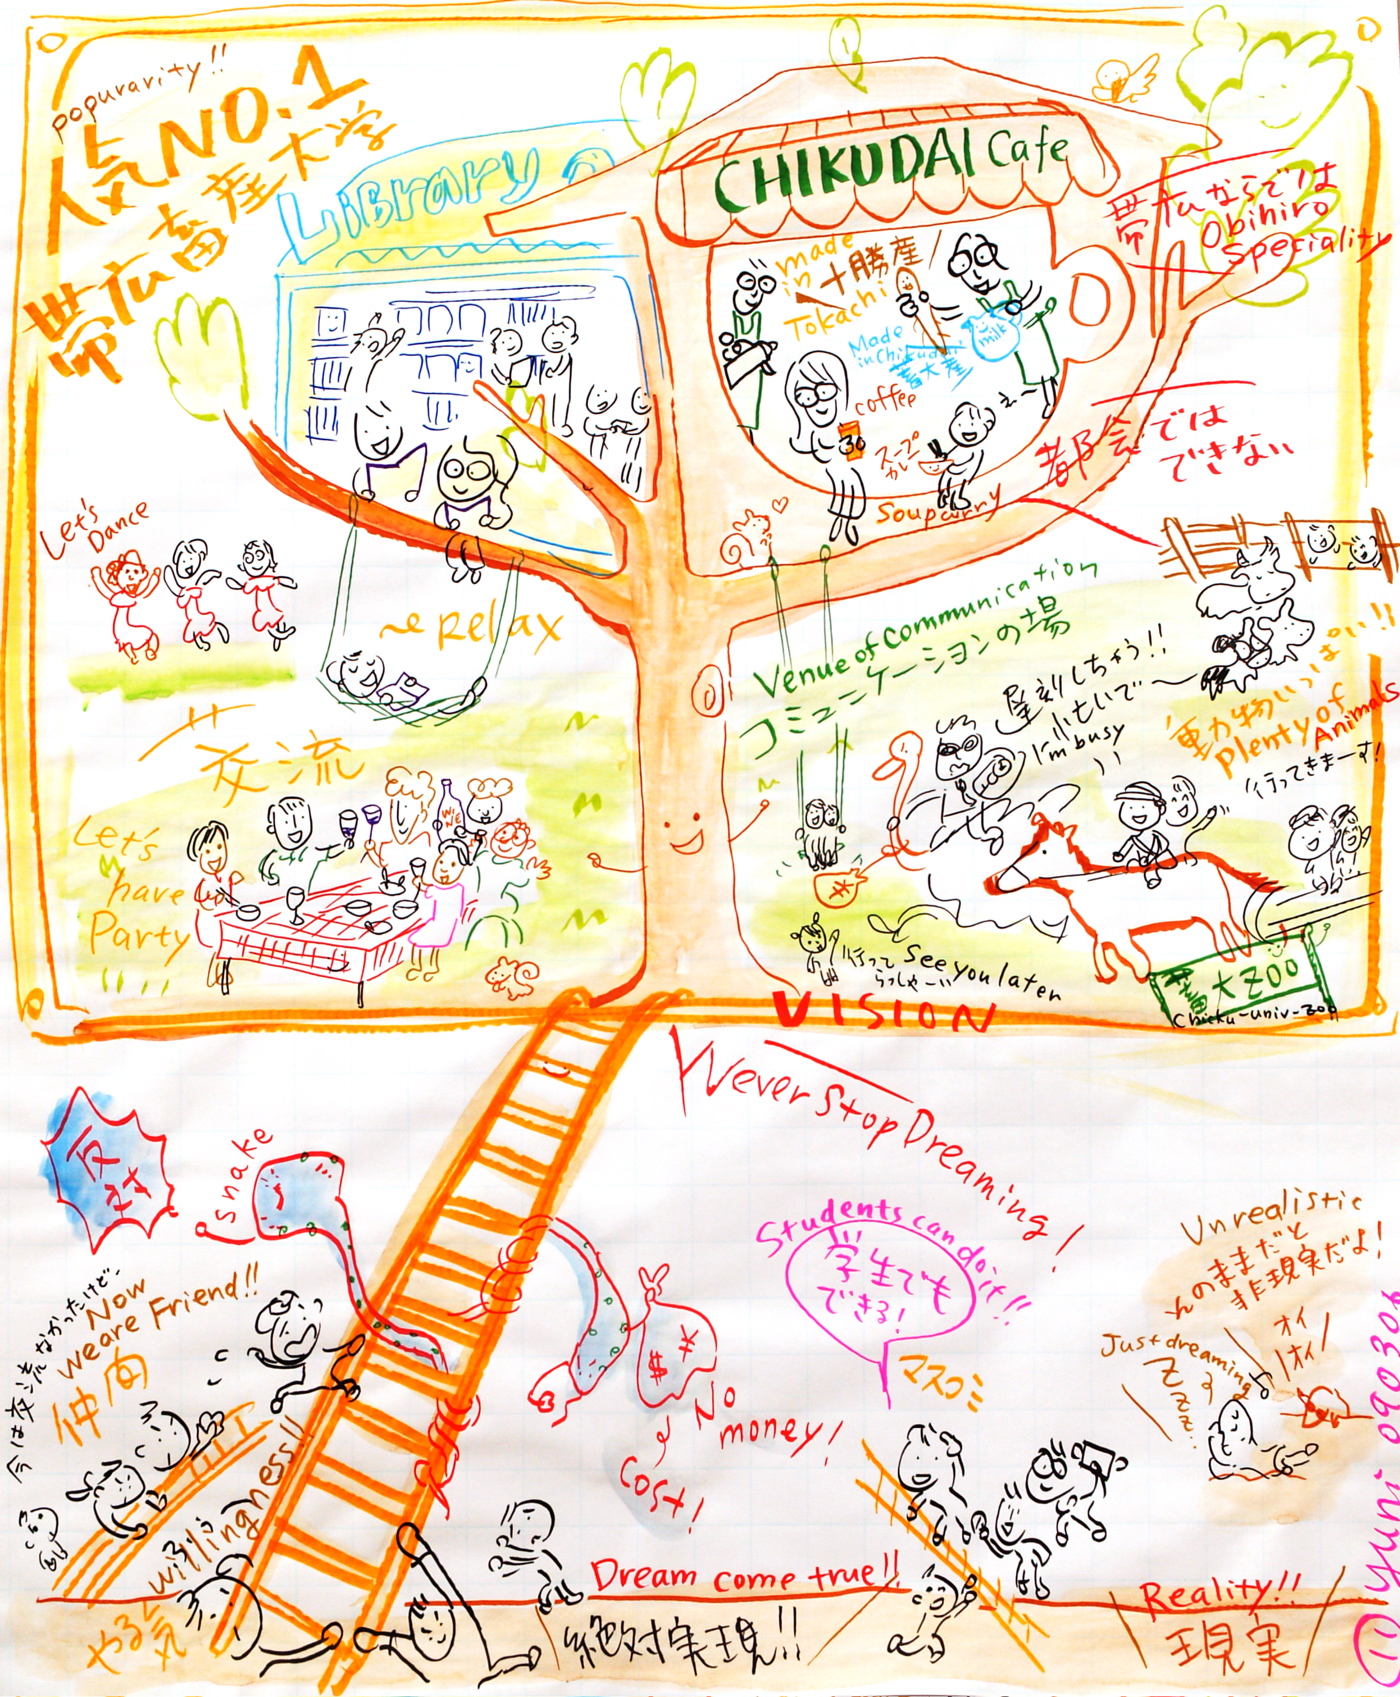 popurarity!!
人気NO.1
帯広畜産大学
Library
CHIKUDAI Cafe
made
in
Tokachi
十勝産
Made
in Chikudai
畜大産
milk
coffee
スープ
カレー
Soupcurry
帯広ならでは
Obihiro
Speciality
都会では
できない
Let's
Dance
~Relax
交流
Let's
have
Party
WINE
Venue of communication
コミュニケーションの場
遅刻しちゃう!!
I'm busy
動物いっぱい!!
Plenty of
Animals
行ってきまーす!
¥
行って
らっしゃーい
See you later
畜大ZOO
Chiku-univ-zoo
VISION
Never Stop Dreaming!
反対
snake
今は交流なかったけど、
Now
we are Friend!!
仲間
$ ¥
No
money!
Cost!
Students can do it!!
学生でも
できる!
マスコミ
Unrealistic
んのままだと
非現実だよ!
オイ
オイ!
Just dreaming
Z Z Z Z..
willingness!!
やる気
Dream come true!!
絶対実現!!
Reality!!
現実
⑪ yumi 090306